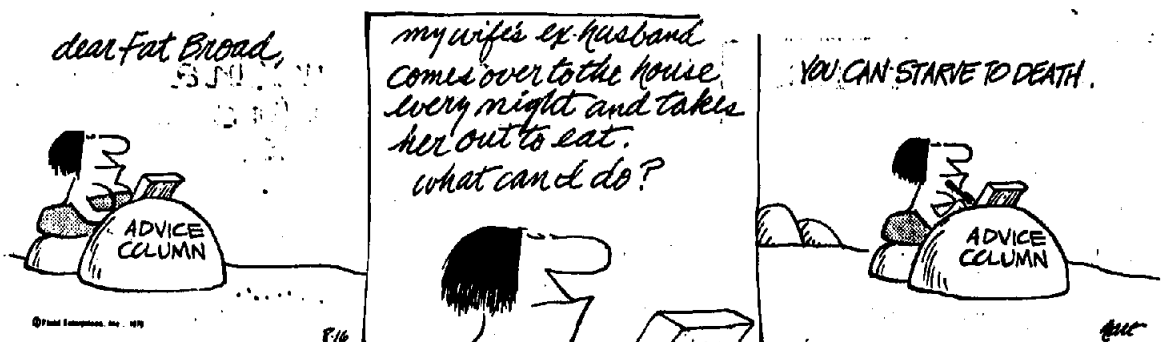 dear Fat Broad,
ADVICE
COLUMN
8-16
my wife's ex-husband
comes over to the house
every night and takes
her out to eat.
what can I do?
YOU CAN STARVE TO DEATH.
ADVICE
COLUMN
hart